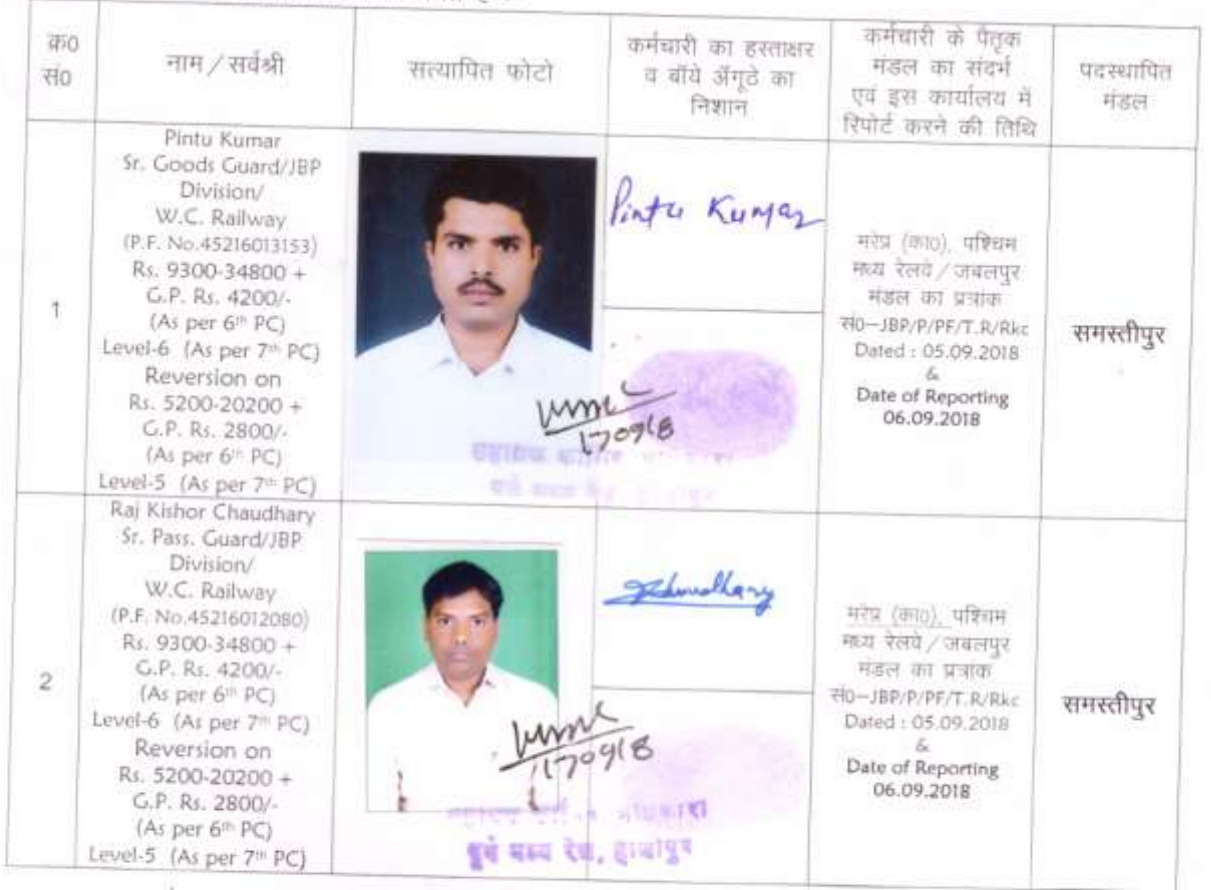 क्र०
सं०
नाम / सर्वश्री
सत्यापित फोटो
कर्मचारी का हस्ताक्षर
व बॉये अँगूठे का
निशान
कर्मचारी के पैतृक
मंडल का संदर्भ
एवं इस कार्यालय में
रिपोर्ट करने की तिथि
पदस्थापित
मंडल
1
Pintu Kumar
Sr. Goods Guard/JBP
Division/
W.C. Railway
(P.F. No.45216013153)
Rs. 9300-34800 +
G.P. Rs. 4200/-
(As per 6th PC)
Level-6 (As per 7th PC)
Reversion on
Rs. 5200-20200 +
G.P. Rs. 2800/-
(As per 6th PC)
Level-5 (As per 7th PC)
170918
Pintu Kumar
मरेप्र (का०), पश्चिम
मध्य रेलवे / जबलपुर
मंडल का पत्रांक
सं०–JBP/P/PF/T.R/Rkc
Dated : 05.09.2018
&
Date of Reporting
06.09.2018
समस्तीपुर
2
Raj Kishor Chaudhary
Sr. Pass. Guard/JBP
Division/
W.C. Railway
(P.F. No.45216012080)
Rs. 9300-34800 +
G.P. Rs. 4200/-
(As per 6th PC)
Level-6 (As per 7th PC)
Reversion on
Rs. 5200-20200 +
G.P. Rs. 2800/-
(As per 6th PC)
Level-5 (As per 7th PC)
170918
पूर्व मध्य रेल, हाजीपुर
मरेप्र (का०), पश्चिम
मध्य रेलवे / जबलपुर
मंडल का पत्रांक
सं०–JBP/P/PF/T.R/Rkc
Dated : 05.09.2018
&
Date of Reporting
06.09.2018
समस्तीपुर